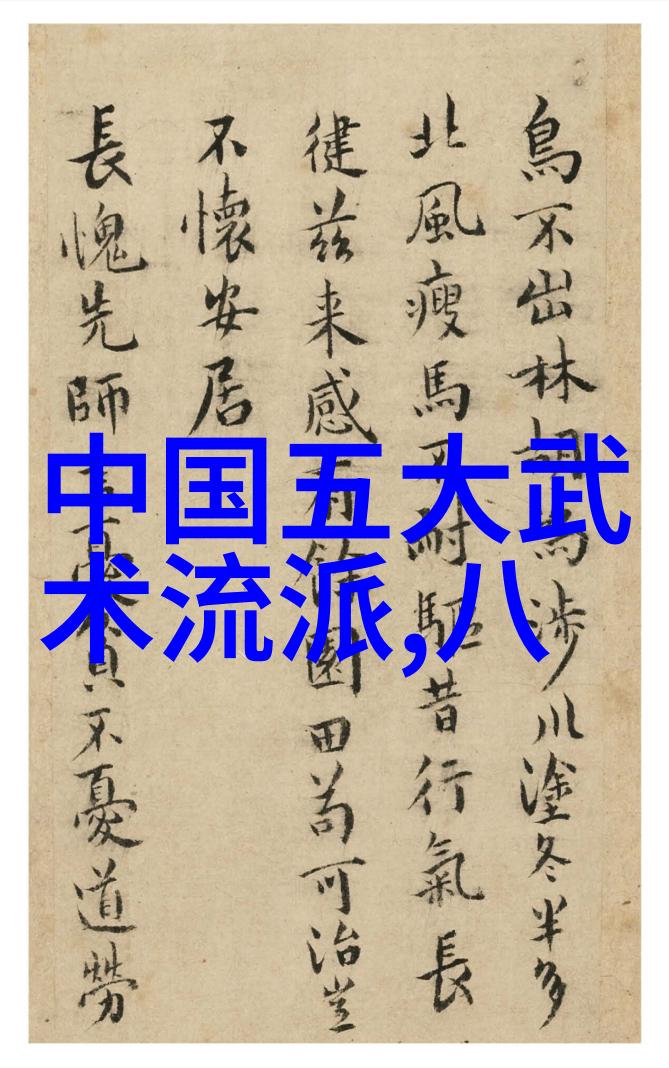 鳥不出林胡為涉川塗冬半多
北風瘦馬不耐驅昔行氣長
徤茲来感有餘園田苟可治豈
不懷安居
長愧先師貧不憂道勞
中国五大武
术流派,八